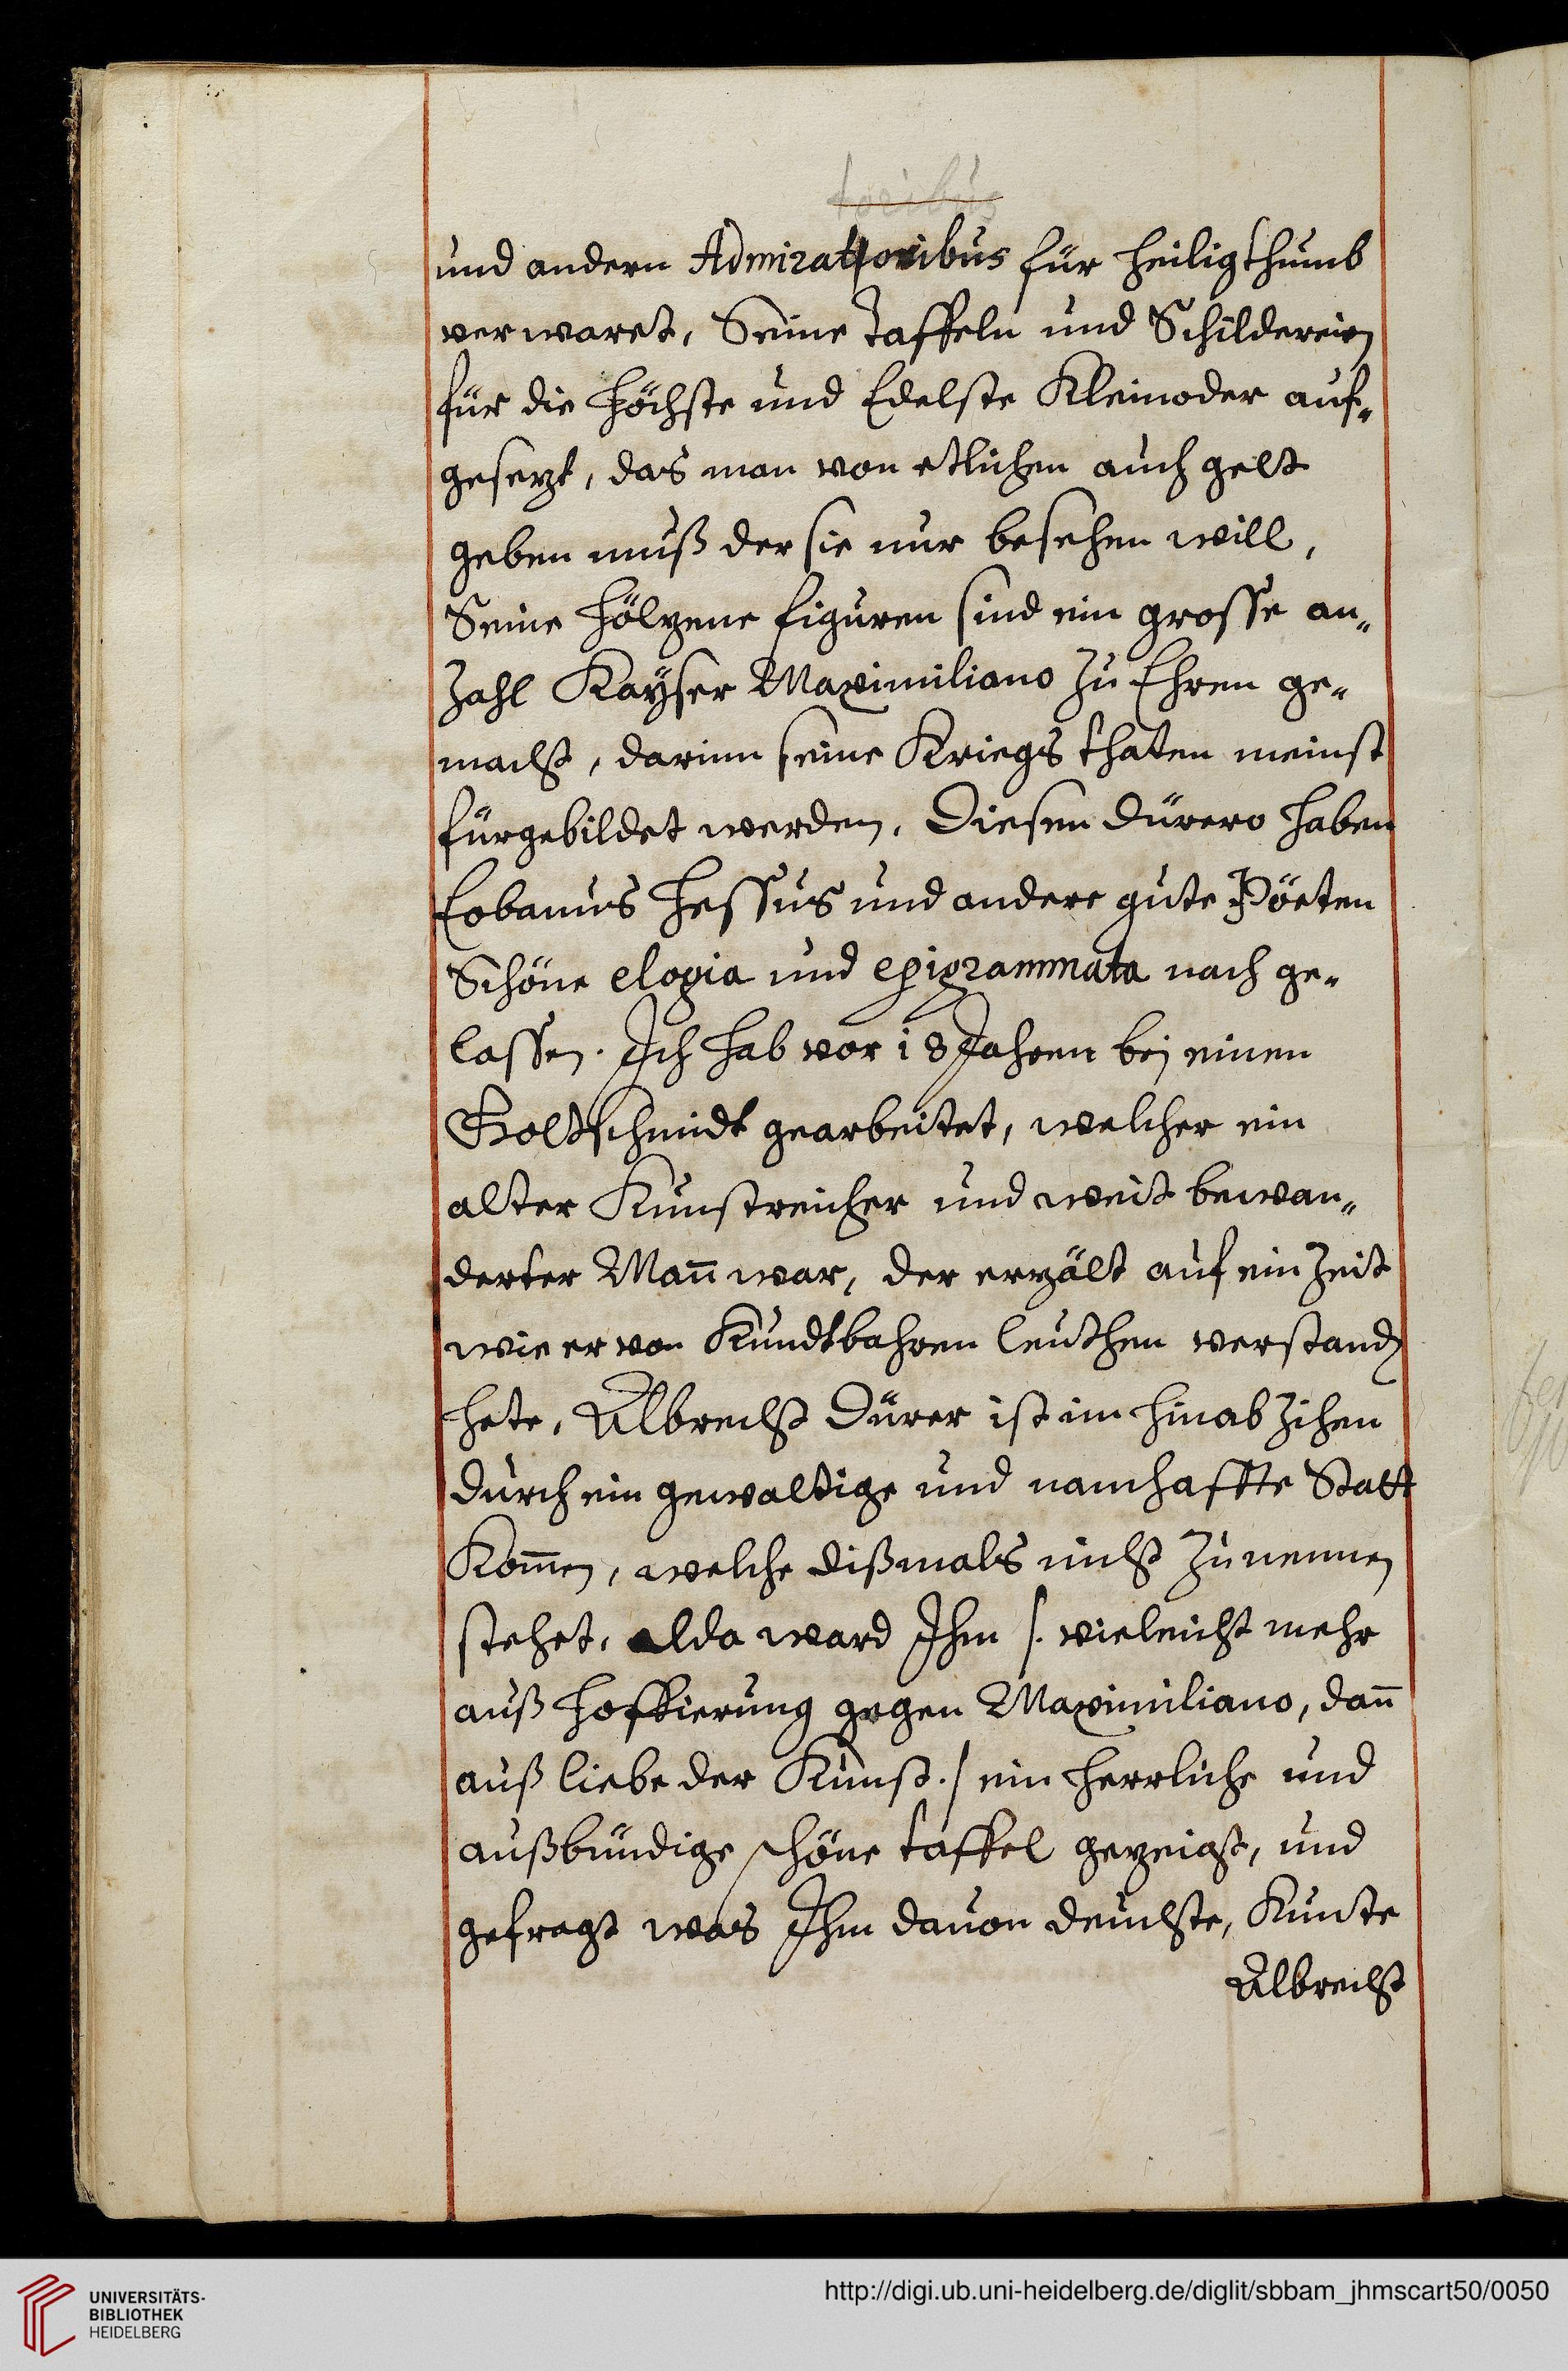 toribus
und andern Admiratoribus für heiligthumb
verwaret, Seine Taffeln und Schildereien
für die höchste und Edelste Kleinoder auf-
gesezt, das man von etlichen auch gelt
geben muß der sie nur besehen will,
Seine hölzene figuren sind ein grosse an-
zahl Kayser Maximiliano zu Ehren ge-
macht, darinn seine Kriegs thaten meinst
fürgebildet werden, Diesen Dürero haben
Eobanus Hessus und andere gute Pöeten
Schöne elogia und epigrammata nach ge-
lassen. Ich hab vor 18 Jahren bej einen
Goltschmidt gearbeitet, welcher ein
alter Kunstreicher und weit bewan-
derter Mañ war, der erzält auf ein Zeit
wie er von Kundtbahren leuthen verstand
hete, Albrecht Dürer ist im hinab zihen
durch ein gewaltige und namhaffte Statt
Kom̃en, welche dißmals nicht zu nennen
stehet, alda ward Ihm /. vieleicht mehr
auß hoffierung gegen Maximiliano, dañ
auß liebe der Kunst ./ ein herrliche und
außbündige schöne taffel gezeigt, und
gefragt was Ihm davon deuchte, Kunte
Albrecht
UNIVERSITÄTS-
BIBLIOTHEK
HEIDELBERG
http://digi.ub.uni-heidelberg.de/diglit/sbbam_jhmscart50/0050